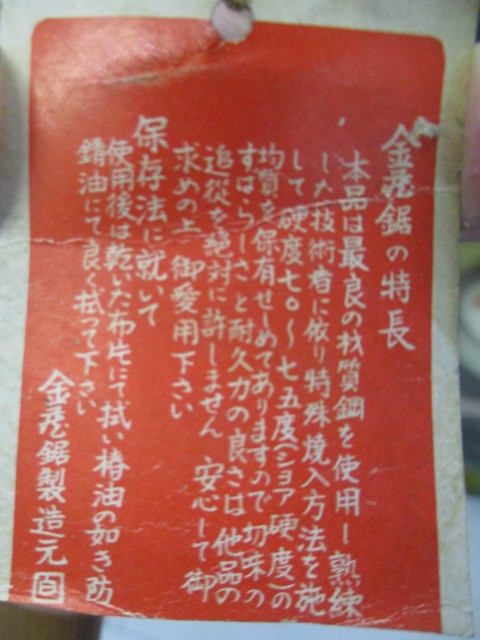 金屋鋸の特長
本品は最良の材質鋼を使用し熟練
した技術者に依り特殊焼入方法を施
して硬度七〇〜七五度(ショア硬度)の
均質を保有せしめてありますので切味の
すばらしさと耐久力の良さは他品の
追従を絶対に許しません 安心して御
求めの上 御愛用下さい
保存法に就いて
使用後は乾いた布片にて拭い椿油の如き防
錆油にて良く拭って下さい
金屋鋸製造元